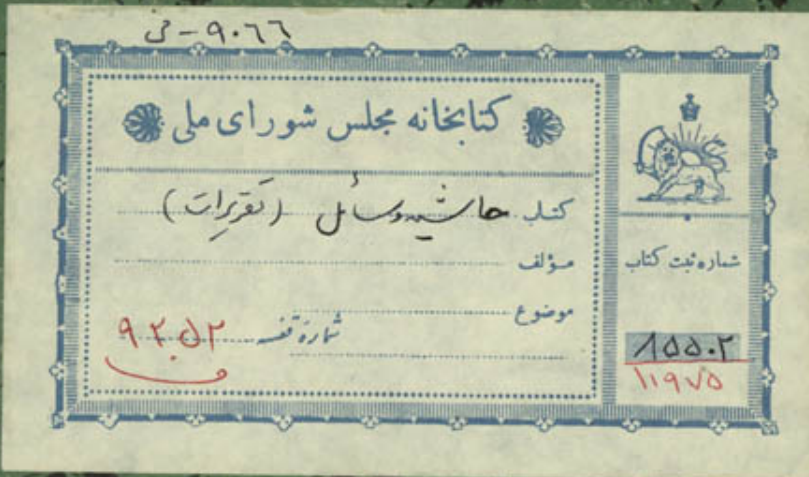 ۹۰۶۶ - ف
کتابخانه مجلس شورای ملی
کتاب حاشیه وسائل (تقریرات)
مؤلف
موضوع
شمارهٔ قفسه ۹۲۵۲
شماره ثبت کتاب
۸۵۵۰۲
۱۱۹۷۵